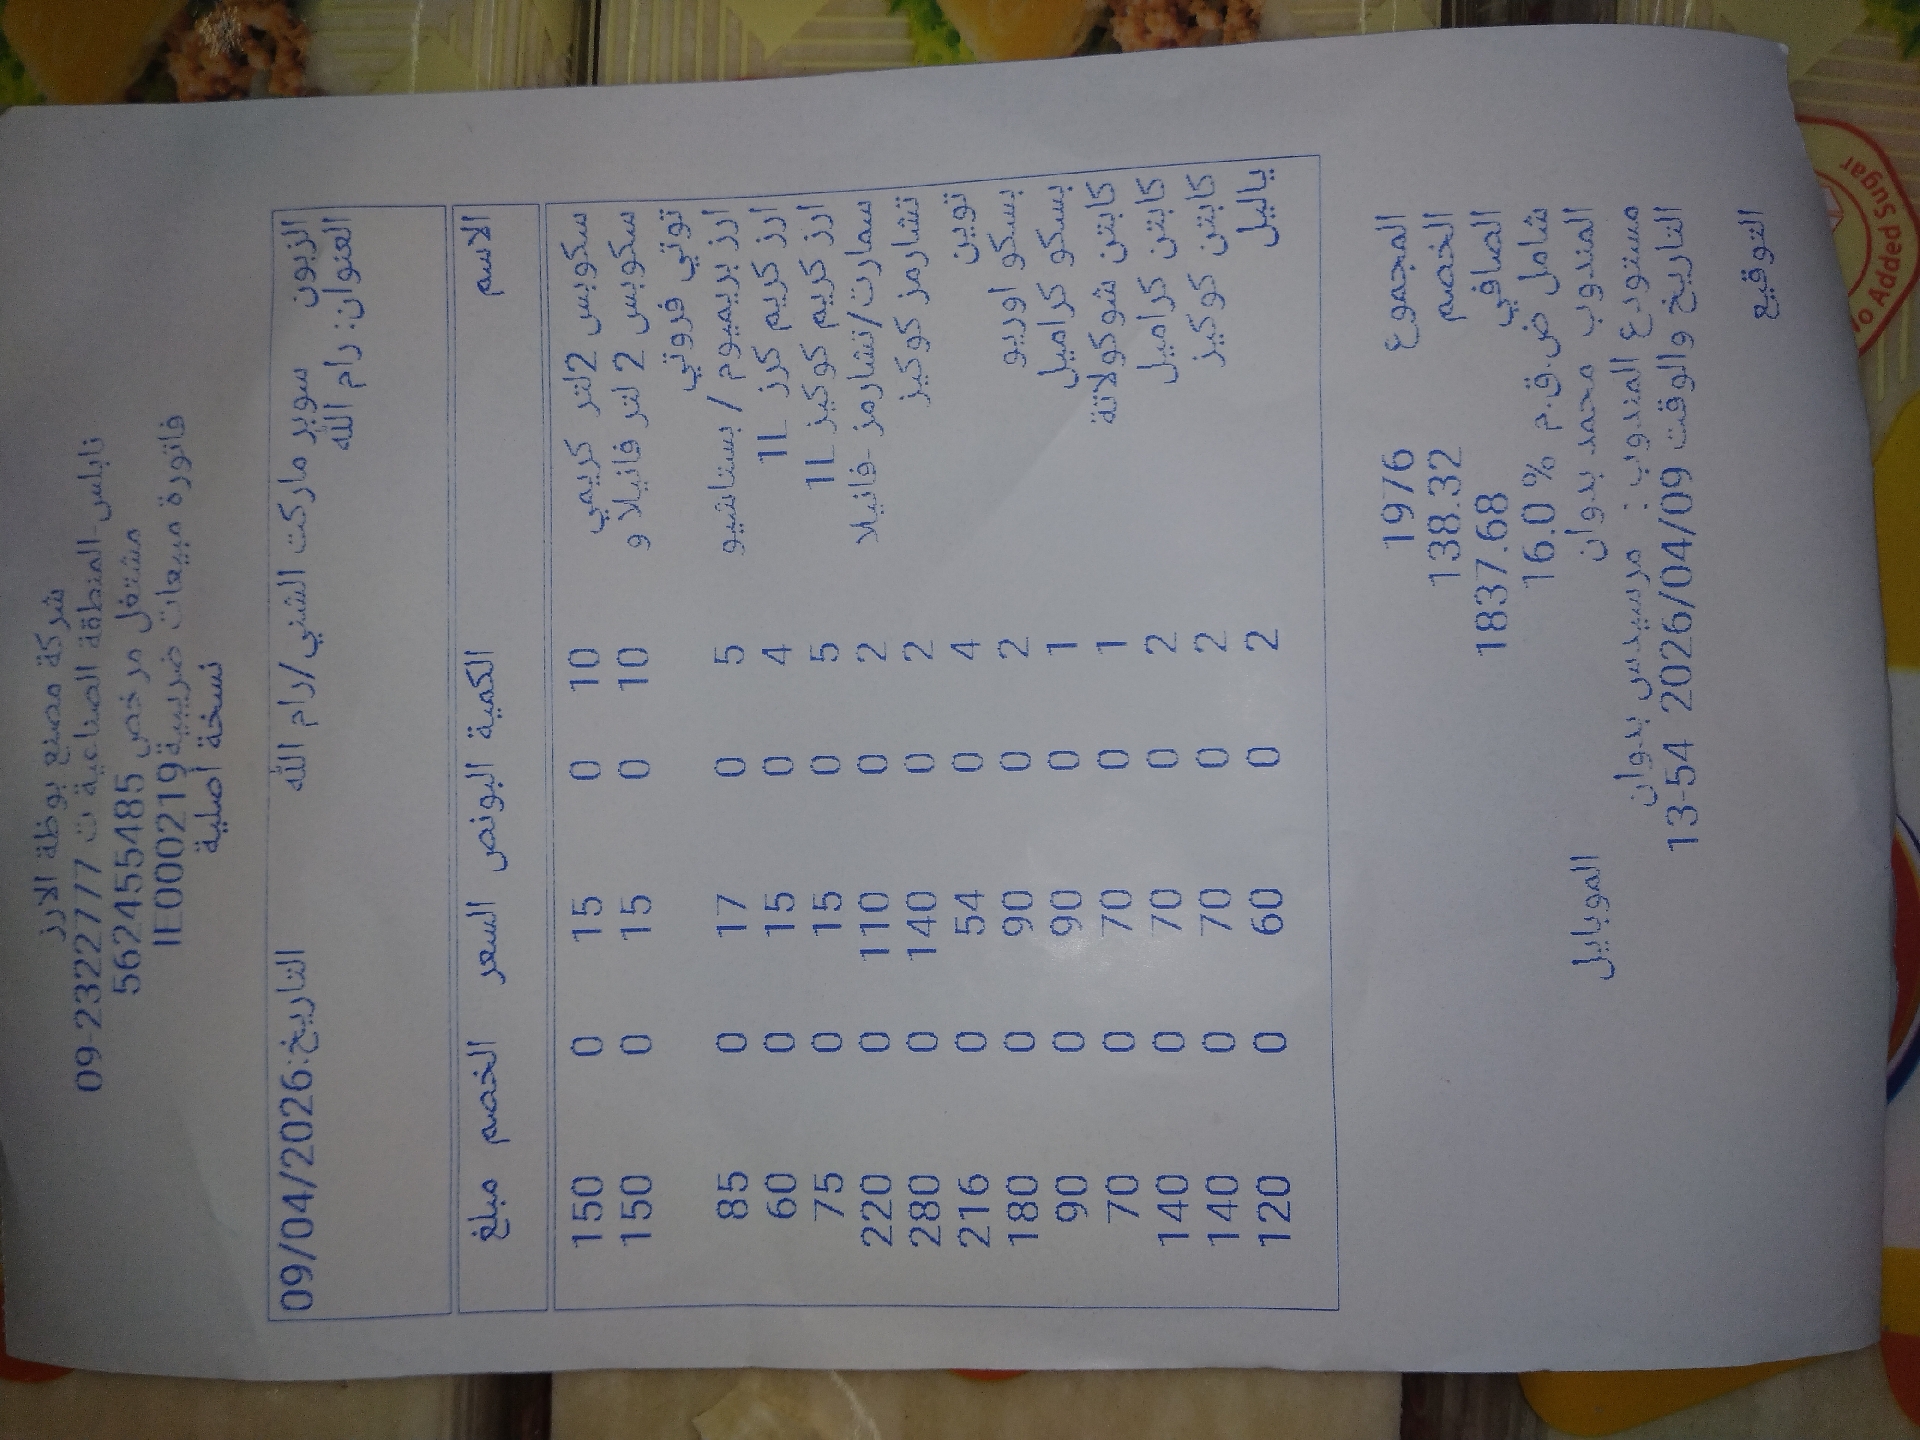 شركة مصنع بوظة الارز
نابلس-المنطقة الصناعية ت 09-2322777
مشتغل مرخص 562455485
فاتورة مبيعات ضريبية IE000219
نسخة أصلية
الزبون سوبر ماركت الشني/رام الله التاريخ:09/04/2026
العنوان: رام الله
الاسم الكمية البونص السعر الخصم مبلغ
سكوبس 2لتر كريمي 10 0 15 0 150
سكوبس 2 لتر فانيلا و 10 0 15 0 150
توتي فروتي
ارز بريميوم / بستاشيو 5 0 17 0 85
ارز كريم كرز 1L 4 0 15 0 60
ارز كريم كوكيز 1L 5 0 15 0 75
سمارت/تشارمز -فانيلا 2 0 110 0 220
تشارمز كوكيز 2 0 140 0 280
توين 4 0 54 0 216
بسكو اوريو 2 0 90 0 180
بسكو كراميل 1 0 90 0 90
كابتن شوكولاتة 1 0 70 0 70
كابتن كراميل 2 0 70 0 140
كابتن كوكيز 2 0 70 0 140
ياليل 2 0 60 0 120
المجموع 1976
الخصم 138.32
الصافي 1837.68
شامل ض.ق.م % 16.0
المندوب محمد بدوان الموبايل
مستودع المندوب : مرسيدس بدوان
التاريخ والوقت 2026/04/09 13-54
التوقيع
No Added Sugar